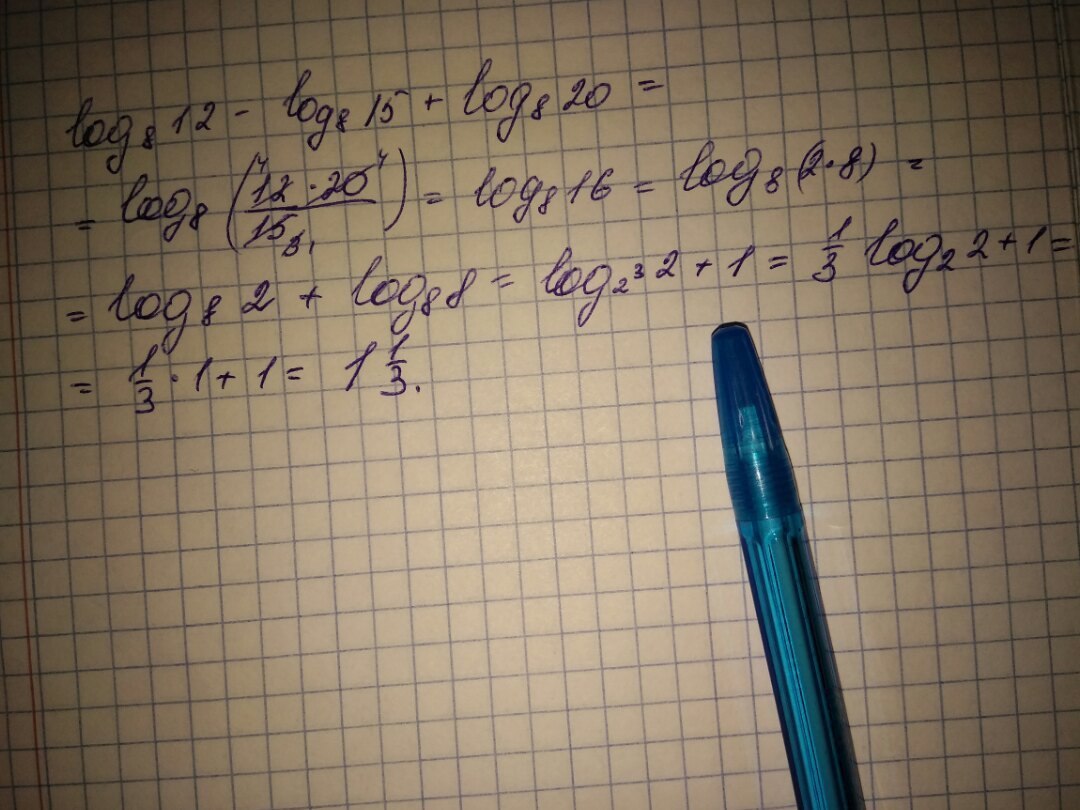 log₈ 12 - log₈ 15 + log₈ 20 =
= log₈ (12 · 20 / 15) = log₈ 16 = log₈ (2 · 8) =
= log₈ 2 + log₈ 8 = log₂³ 2 + 1 = 1/3 log₂ 2 + 1 =
= 1/3 · 1 + 1 = 1 1/3.